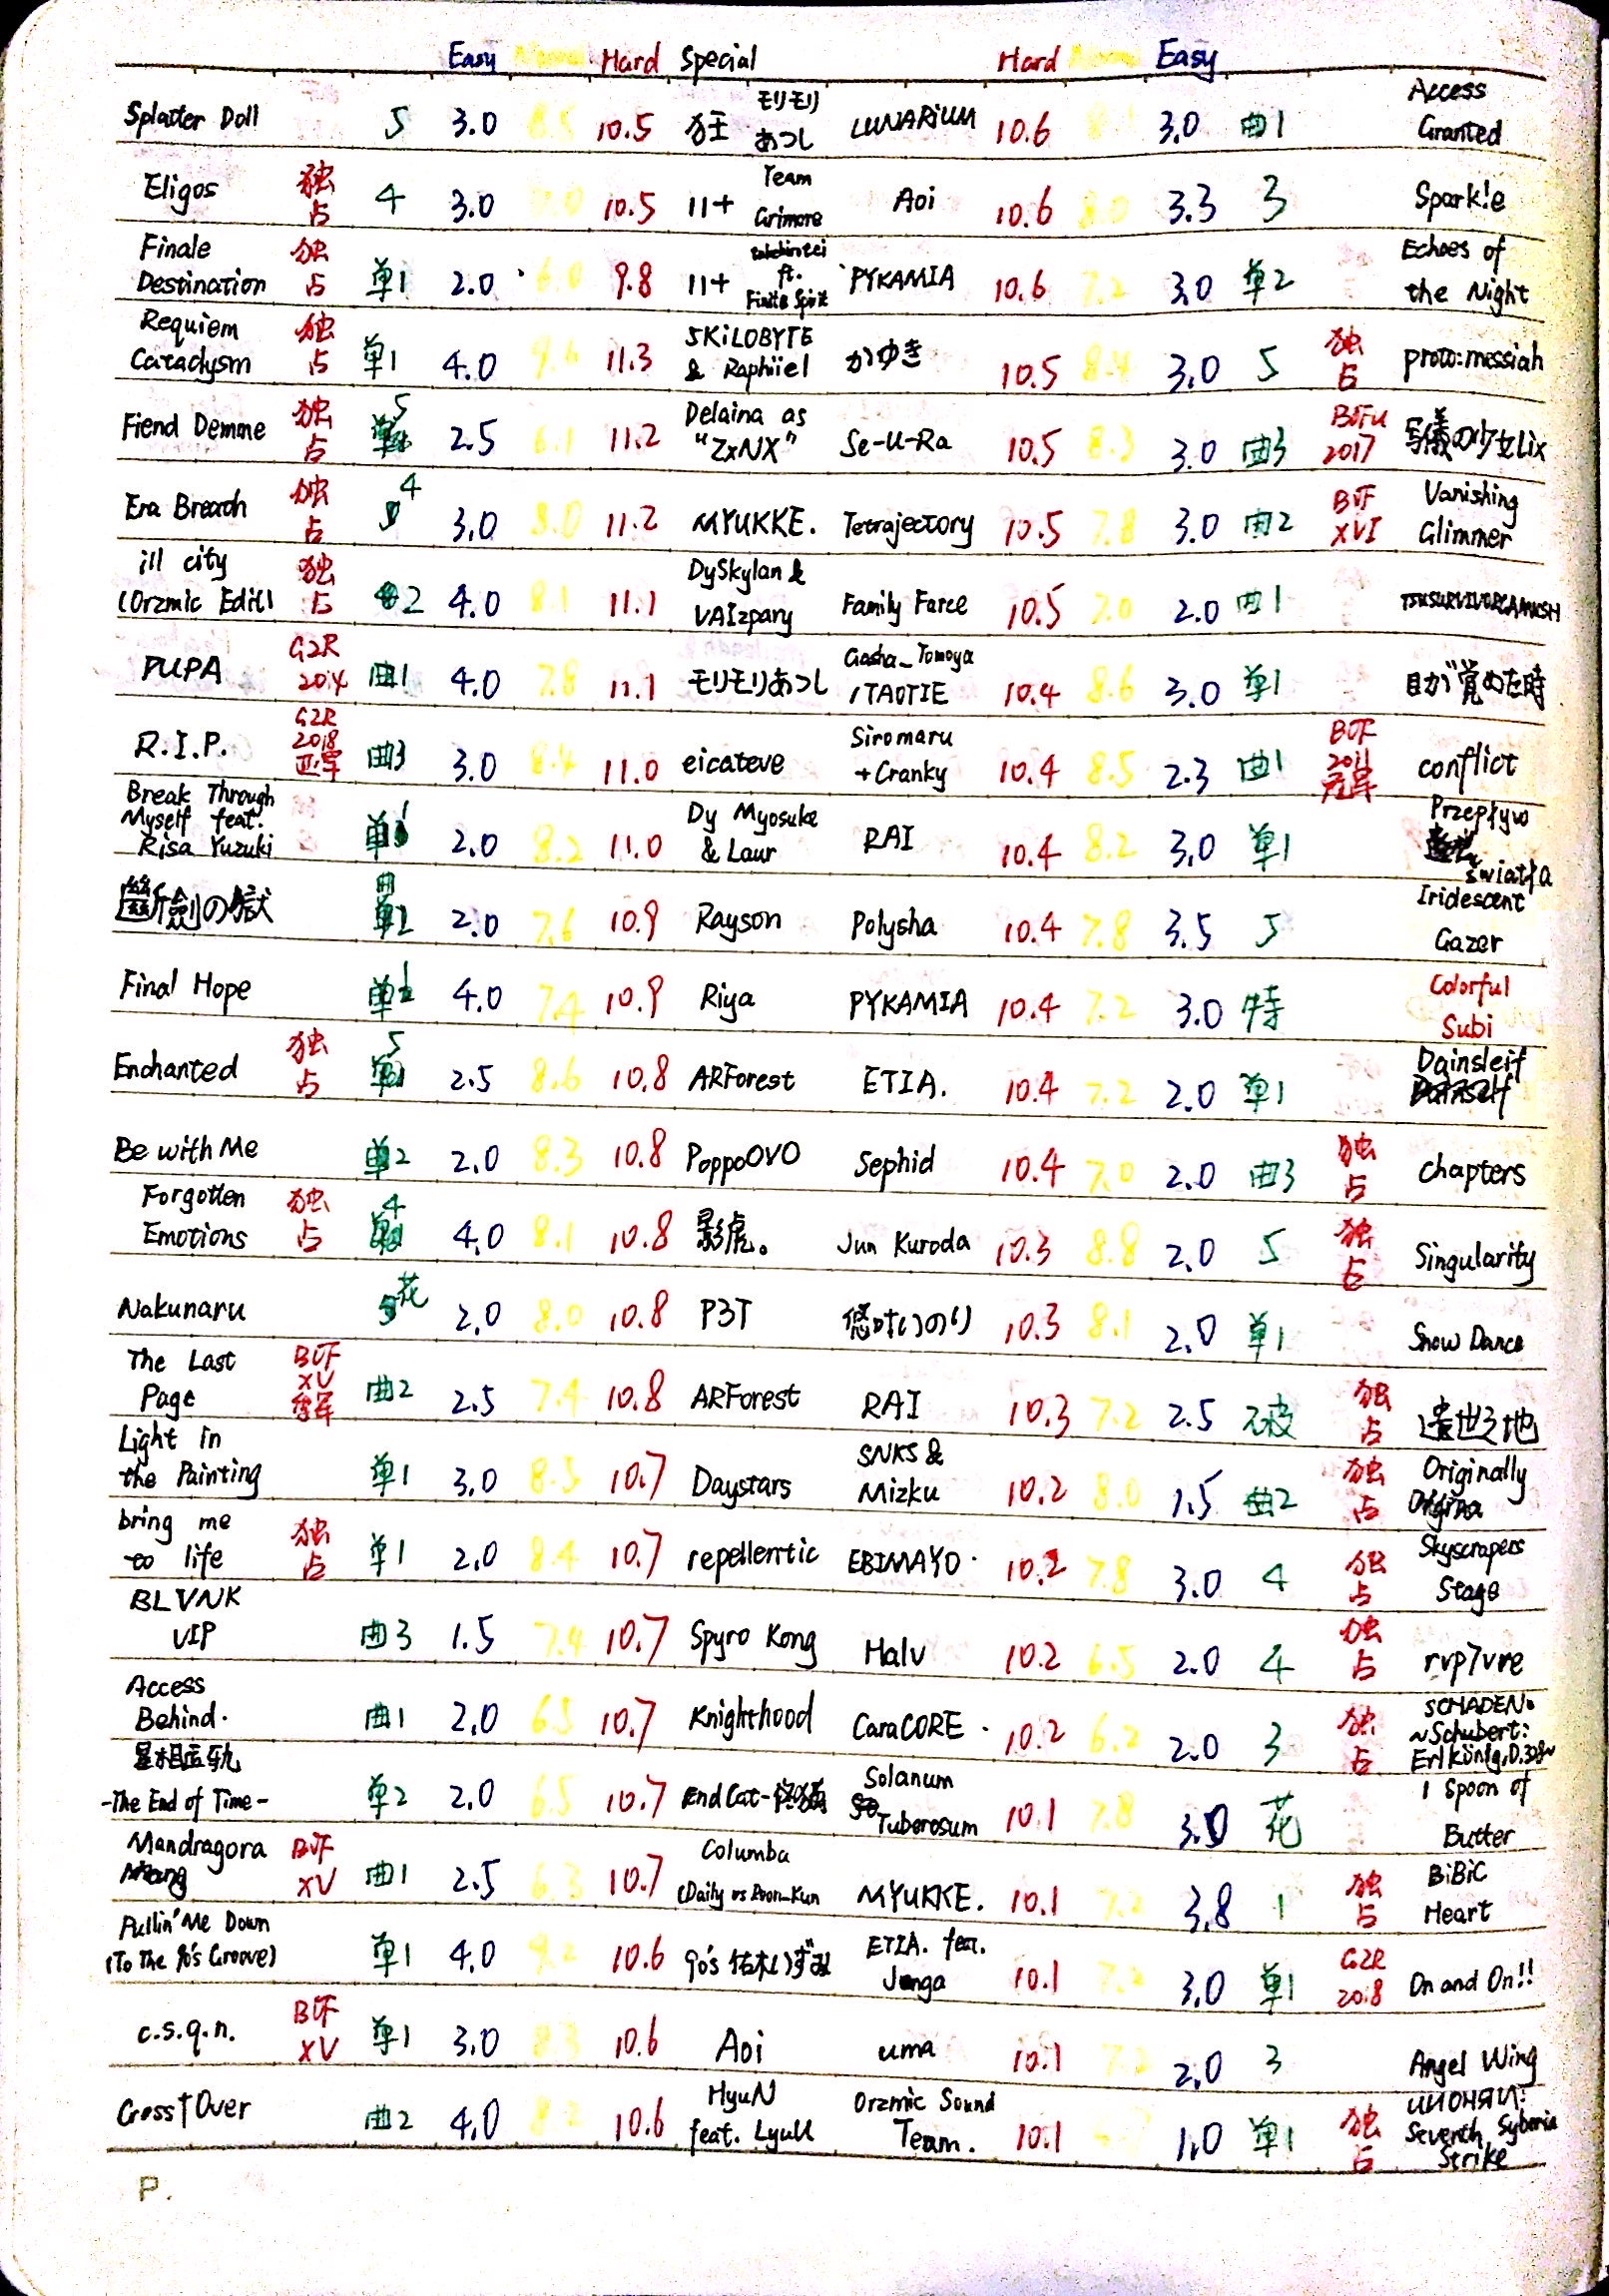 Easy Hard Special Hard Easy
Splatter Doll 5 3.0 8.5 10.5 狂 モリモリあつし LUNARiUM 10.6 3.0 曲1 Access Granted
Eligos 独占 4 3.0 10.5 11+ Team Grimore Aoi 10.6 8.0 3.3 3 Spark!e
Finale Destination 独占 单1 2.0 6.0 9.8 11+ ft. Finite Spirit PYKAMIA 10.6 7.2 3.0 单2 Echoes of the Night
Requiem Cataclysm 独占 单1 4.0 11.3 5KiLOBYTE & Raphiiel かゆき 10.5 8.4 3.0 5 独占 proto:messiah
Fiend Demme 独占 5 2.5 6.1 11.2 Delaina as "ZxNX" Se-U-Ra 10.5 8.3 3.0 曲3 BOFU 2017 の少女Lix
Era Breach 独占 4 3.0 8.0 11.2 MYUKKE. Tetrajectory 10.5 7.8 3.0 曲2 BOF XVI Vanishing Glimmer
ill city (Orzmic Edit) 独占 2 4.0 8.1 11.1 DySkylan & VAIzpany Family Farce 10.5 7.0 2.0 曲1
PUPA G2R 2014 曲1 4.0 7.8 11.1 モリモリあつし Gosha_Tomoya /TAOTIE 10.4 8.6 3.0 单1 目が覚めた時
R.I.P. G2R 2018 亚军 曲3 3.0 8.4 11.0 eicateve Siromaru +Cranky 10.4 8.5 2.3 曲1 BOF 2011 conflict
Break Through Myself feat. Risa Yuzuki 单1 2.0 8.2 11.0 Dy Myosuke & Laur RAI 10.4 8.2 3.0 单1 Przepływ światła
斷劍の獄 2.0 7.6 10.9 Rayson Polysha 10.4 7.8 3.5 5 Iridescent Gazer
Final Hope 单1 4.0 7.4 10.9 Riya PYKAMIA 10.4 7.2 3.0 特 Colorful Subi
Enchanted 独占 5 2.5 8.6 10.8 ARForest ETIA. 10.4 7.2 2.0 单1 Dainsleif
Be with Me 单2 2.0 8.3 10.8 PoppoOVO Sephid 10.4 7.0 2.0 曲3 独占 chapters
Forgotten Emotions 独占 4 4.0 8.1 10.8 影虎。 Jun Kuroda 10.3 8.8 2.0 5 独占 Singularity
Nakunaru 花 2.0 8.0 10.8 P3T 悠叶いのり 10.3 8.1 2.0 单1 Snow Dance
The Last Page BOF XV 季军 曲2 2.5 7.4 10.8 ARForest RAI 10.3 7.2 2.5 破 独占
Light in the Painting 单1 3.0 8.5 10.7 Daystars SNKS & Mizku 10.2 8.0 1.5 曲2 独占 Originally
bring me to life 独占 单1 2.0 8.4 10.7 repellerrtic EBIMAYO 10.2 7.8 3.0 4 独占 Skyscrapers Stage
BLVNK VIP 曲3 1.5 7.4 10.7 Spyro Kong Halv 10.2 6.5 2.0 4 独占 rvp7vre
Access Behind. 曲1 2.0 6.5 10.7 Knighthood CaraCORE 10.2 6.2 2.0 3 独占 SCHADEN. ~Schubert: Erlkönig, D.328~
-The End of Time- 单2 2.0 6.5 10.7 EndCat- Solanum Tuberosum 10.1 7.8 3.0 花 1 Spoon of Butter
Mandragora BOF XV 曲1 2.5 6.3 10.7 Columba (Daily vs Poon-Kun MYUKKE. 10.1 7.2 3.8 1 独占 BiBiC Heart
Pullin' Me Down (To The 90's Groove) 单1 4.0 9.2 10.6 90's 佑木いずみ ETIA. feat. Jenga 10.1 7.2 3.0 单1 G2R 2018 On and On!!
c.s.q.n. BOF XV 单1 3.0 8.3 10.6 Aoi uma 10.1 7.2 2.0 3 Angel Wing
Cross†Over 曲2 4.0 10.6 HyuN feat. LyuU Orzmic Sound Team. 10.1 1.0 单1 独占 Seventh Syberia Strike
P.